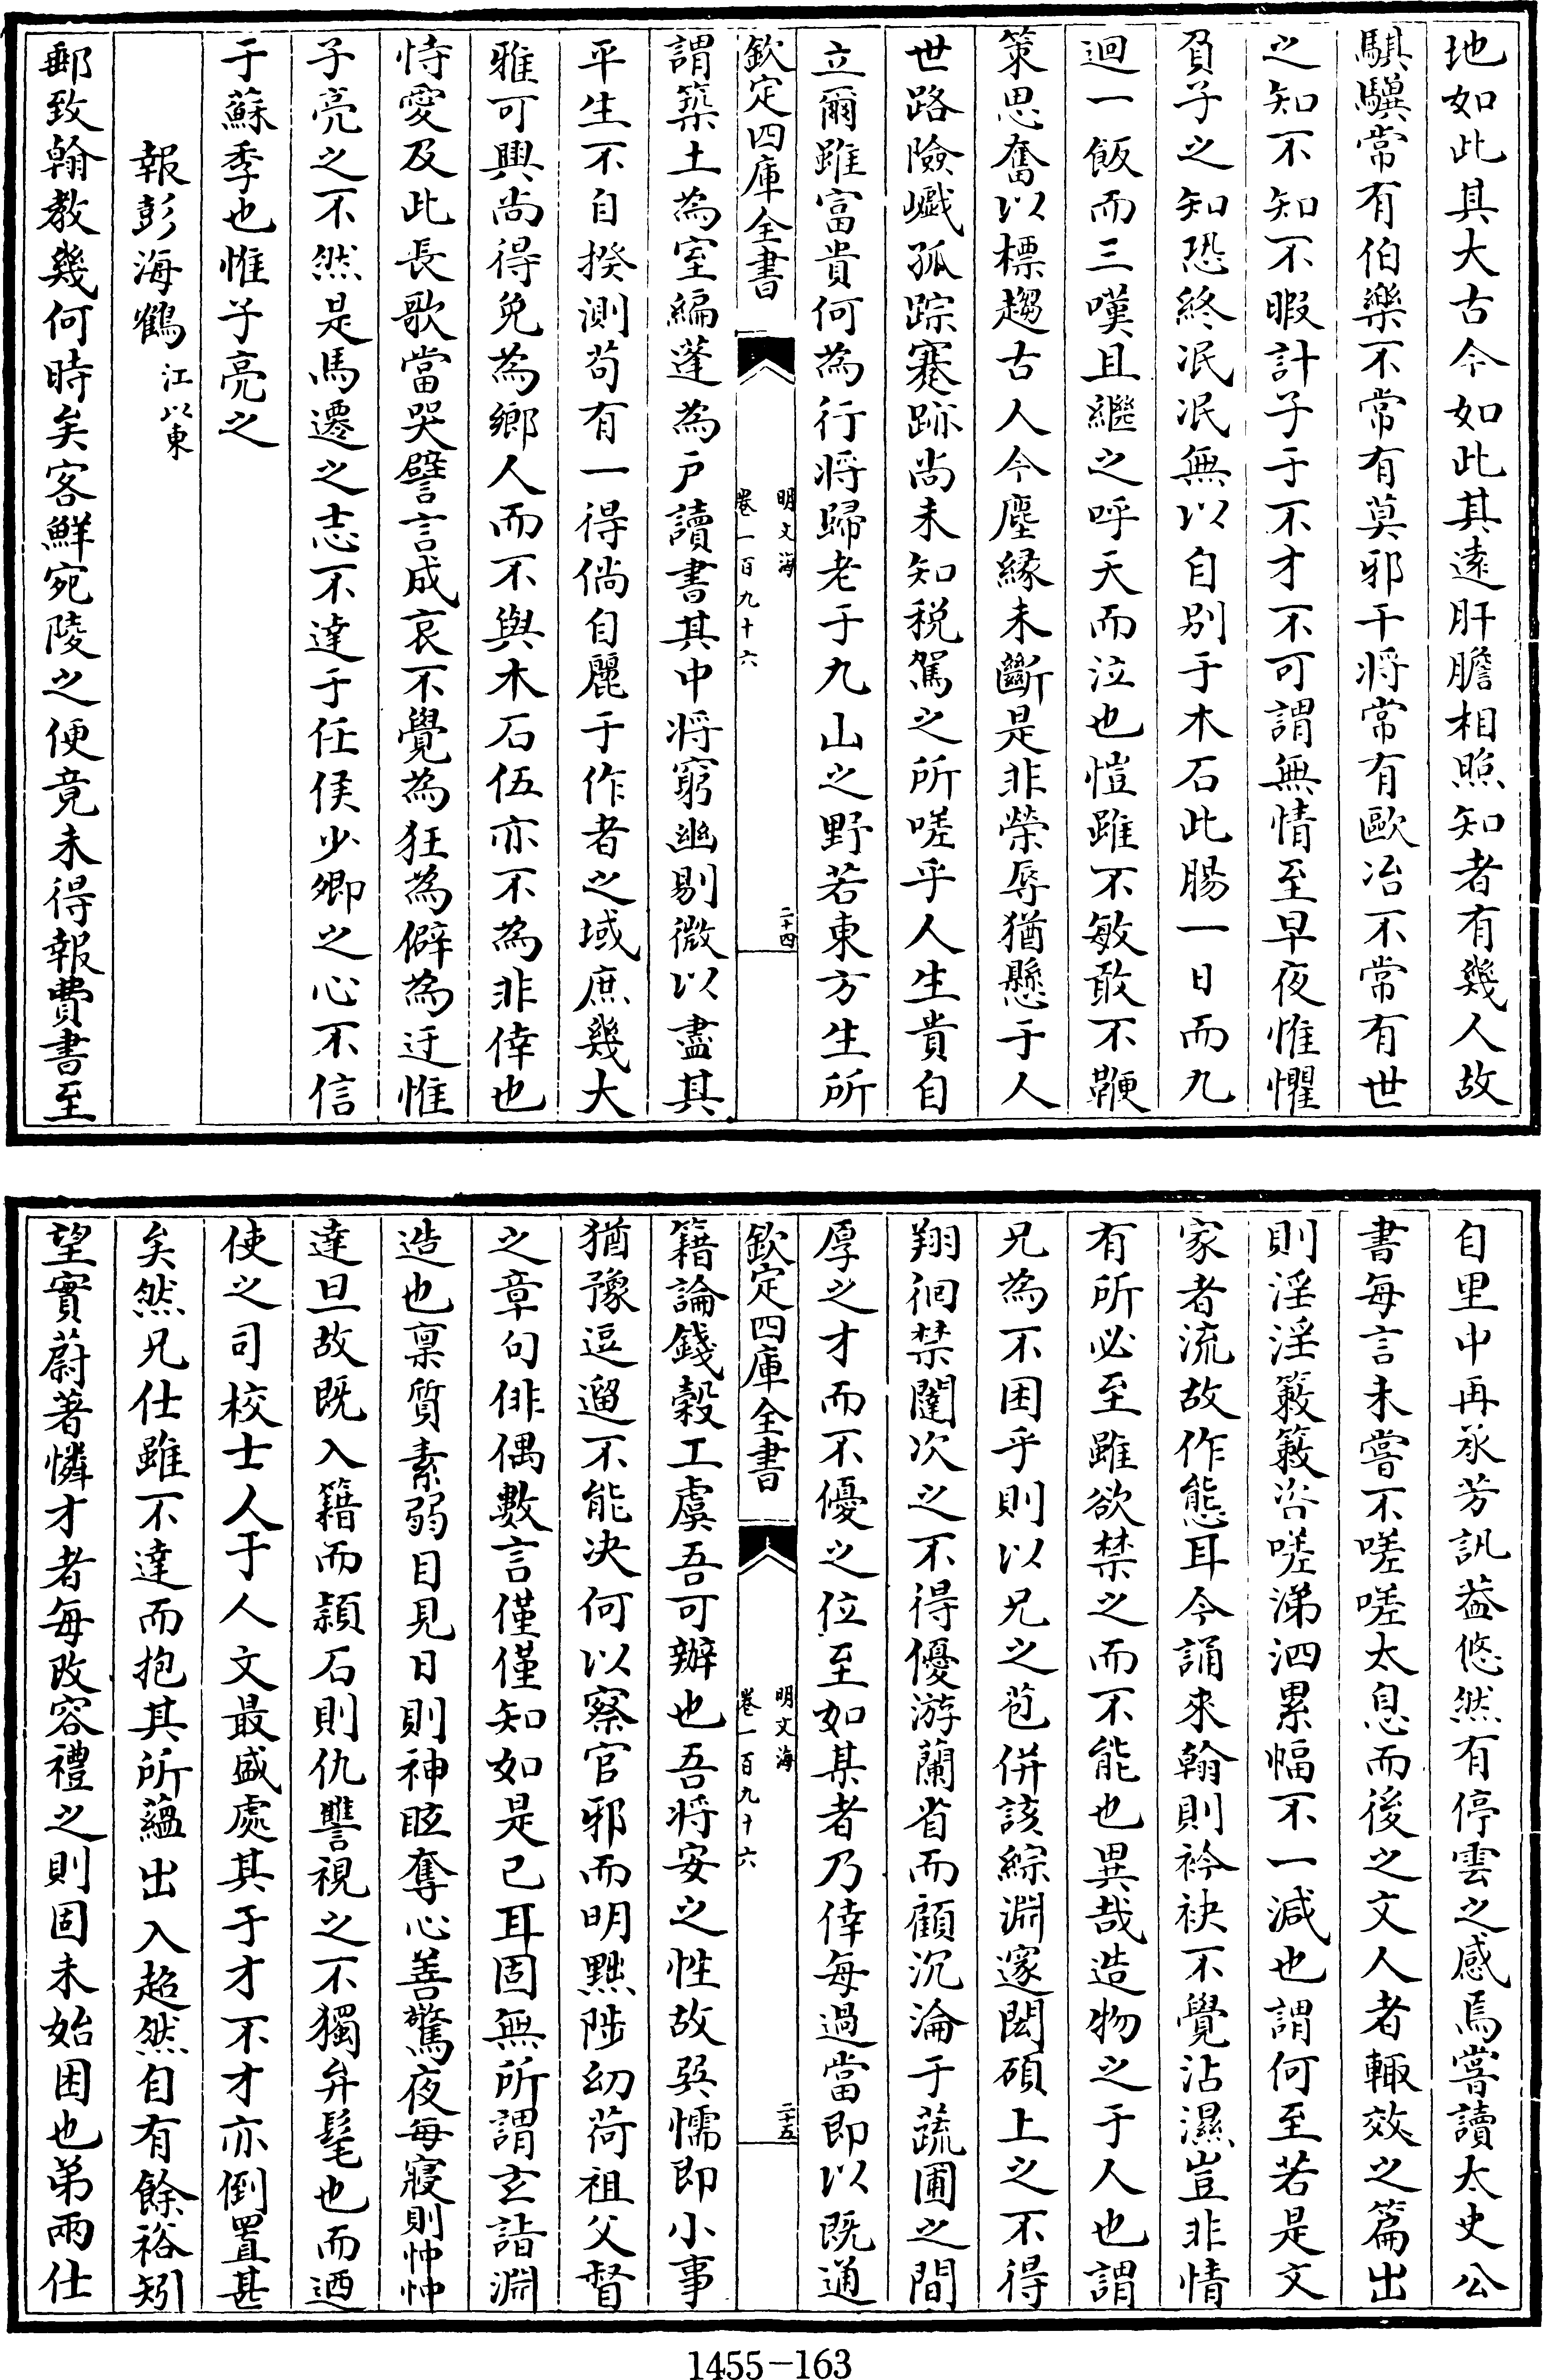 地如此其大古今如此其遠肝膽相照知者有幾人故
騏驥常有伯樂不常有莫邪干將常有歐冶不常有世
之知不知不暇計子于不才不可謂無情至早夜惟懼
負子之知恐終泯泯無以自别于木石此腸一日而九
迴一飯而三嘆且繼之呼天而泣也愷雖不敏敢不鞭
策思奮以標趨古人今塵緣未斷是非榮辱猶懸于人
世路險巇孤踪蹇跡尚未知稅駕之所嗟乎人生貴自
立爾雖富貴何為行將歸老于九山之野若東方生所
欽定四庫全書
明文海
卷一百九十六
二十四
謂築土為室編蓬為戶讀書其中將窮幽剔微以盡其
平生不自揆測茍有一得倘自麗于作者之域庶幾大
雅可輿尚得免為鄉人而不與木石伍亦不為非倖也
恃愛及此長歌當哭譬言成哀不覺為狂為僻為迂惟
子亮之不然是馬遷之志不達于任侯少卿之心不信
于蘇季也惟子亮之
報彭海鶴 江以東
郵致翰教幾何時矣客鮮宛陵之便竟未得報費書至
自里中再承芳訊益悠然有停雲之感焉嘗讀太史公
書每言未嘗不嗟嗟太息而後之文人者輙效之篇出
則淫淫簌簌咨嗟涕泗累幅不一減也謂何至若是文
家者流故作態耳今誦來翰則衿袂不覺沾濕豈非情
有所必至雖欲禁之而不能也異哉造物之于人也謂
兄為不困乎則以兄之苞併該綜淵邃閎碩上之不得
翔徊禁闥次之不得優游蘭省而顧沉淪于蔬圃之間
厚之才而不優之位至如某者乃倖每過當即以既通
欽定四庫全書
明文海
卷一百九十六
二十五
籍論錢穀工虞吾可辦也吾將安之性故巽懦即小事
猶豫逗遛不能决何以察官邪而明黜陟幼荷祖父督
之章句俳偶數言僅僅知如是已耳固無所謂玄詣淵
造也稟質素弱目見日則神眩奪心善驚夜每寢則忡忡
達旦故既入籍而頴石則仇讐視之不獨弁髦也而迺
使之司校士人于人文最盛處其于才不才亦倒置甚
矣然兄仕雖不達而抱其所蘊出入超然自有餘裕矧
望實蔚著憐才者每改容禮之則固未始困也弟兩仕
1455-163